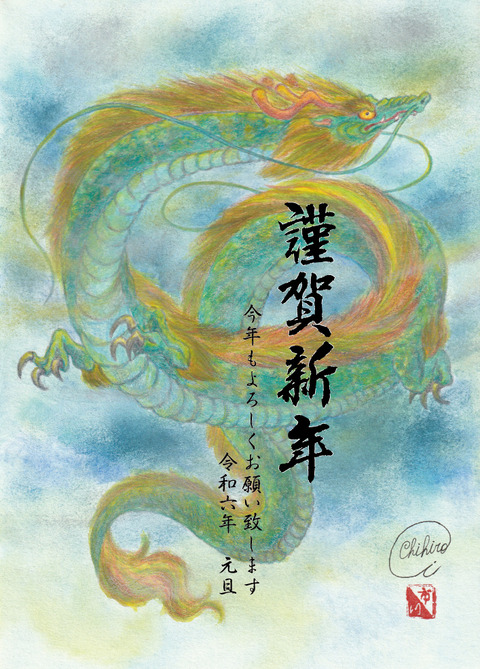 謹賀新年
今年もよろしくお願い致します
令和六年 元旦
Chihiro
i
市川